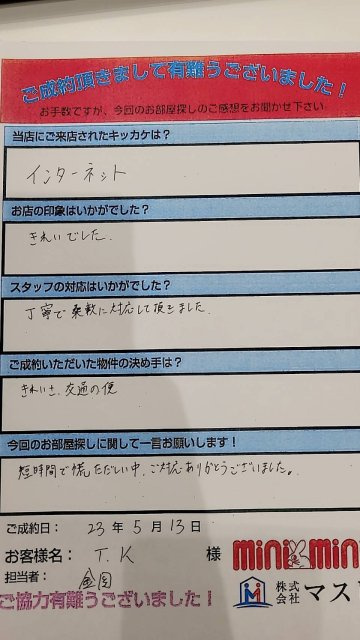 ご成約頂きまして有難うございました！
お手数ですが、今回のお部屋探しのご感想をお聞かせ下さい
当店にご来店されたキッカケは？
インターネット
お店の印象はいかがでした？
きれいでした。
スタッフの対応はいかがでした？
丁寧で柔軟に対応して頂きました。
ご成約いただいた物件の決め手は？
きれいさ、交通の便
今回のお部屋探しに関して一言お願いします！
短時間で慌ただしい中、ご対応ありがとうございました。
ご成約日： 23 年 5 月 13 日
お客様名： T.K 様
mini mini
担当者：
株式会社 マス
ご協力有難うございました！